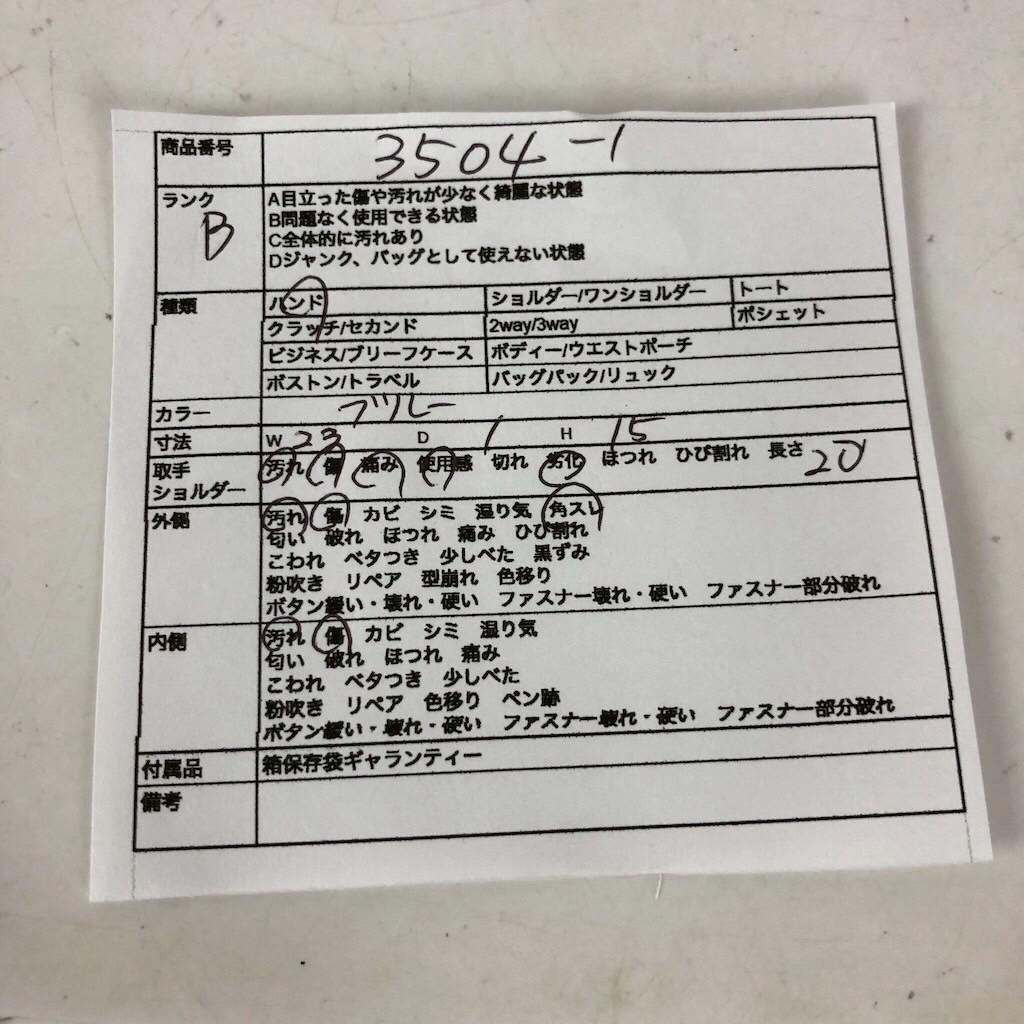 商品番号 3504-1
ランク B
A目立った傷や汚れが少なく綺麗な状態
B問題なく使用できる状態
C全体的に汚れあり
Dジャンク、バッグとして使えない状態
種類 ハンド ショルダー/ワンショルダー トート
クラッチ/セカンド 2way/3way ポシェット
ビジネス/ブリーフケース ボディー/ウエストポーチ
ボストン/トラベル バッグパック/リュック
カラー ブルー
寸法 W 23 D 1 H 15
取手 汚れ 傷 痛み 使用感 切れ 劣化 ほつれ ひび割れ 長さ 20
ショルダー
外側 汚れ 傷 カビ シミ 湿り気 角スレ
匂い 破れ ほつれ 痛み ひび割れ
こわれ ベタつき 少しべた 黒ずみ
粉吹き リペア 型崩れ 色移り
ボタン緩い・壊れ・硬い ファスナー壊れ・硬い ファスナー部分破れ
内側 汚れ 傷 カビ シミ 湿り気
匂い 破れ ほつれ 痛み
こわれ ベタつき 少しべた
粉吹き リペア 色移り ペン跡
ボタン緩い・壊れ・硬い ファスナー壊れ・硬い ファスナー部分破れ
付属品 箱保存袋ギャランティー
備考